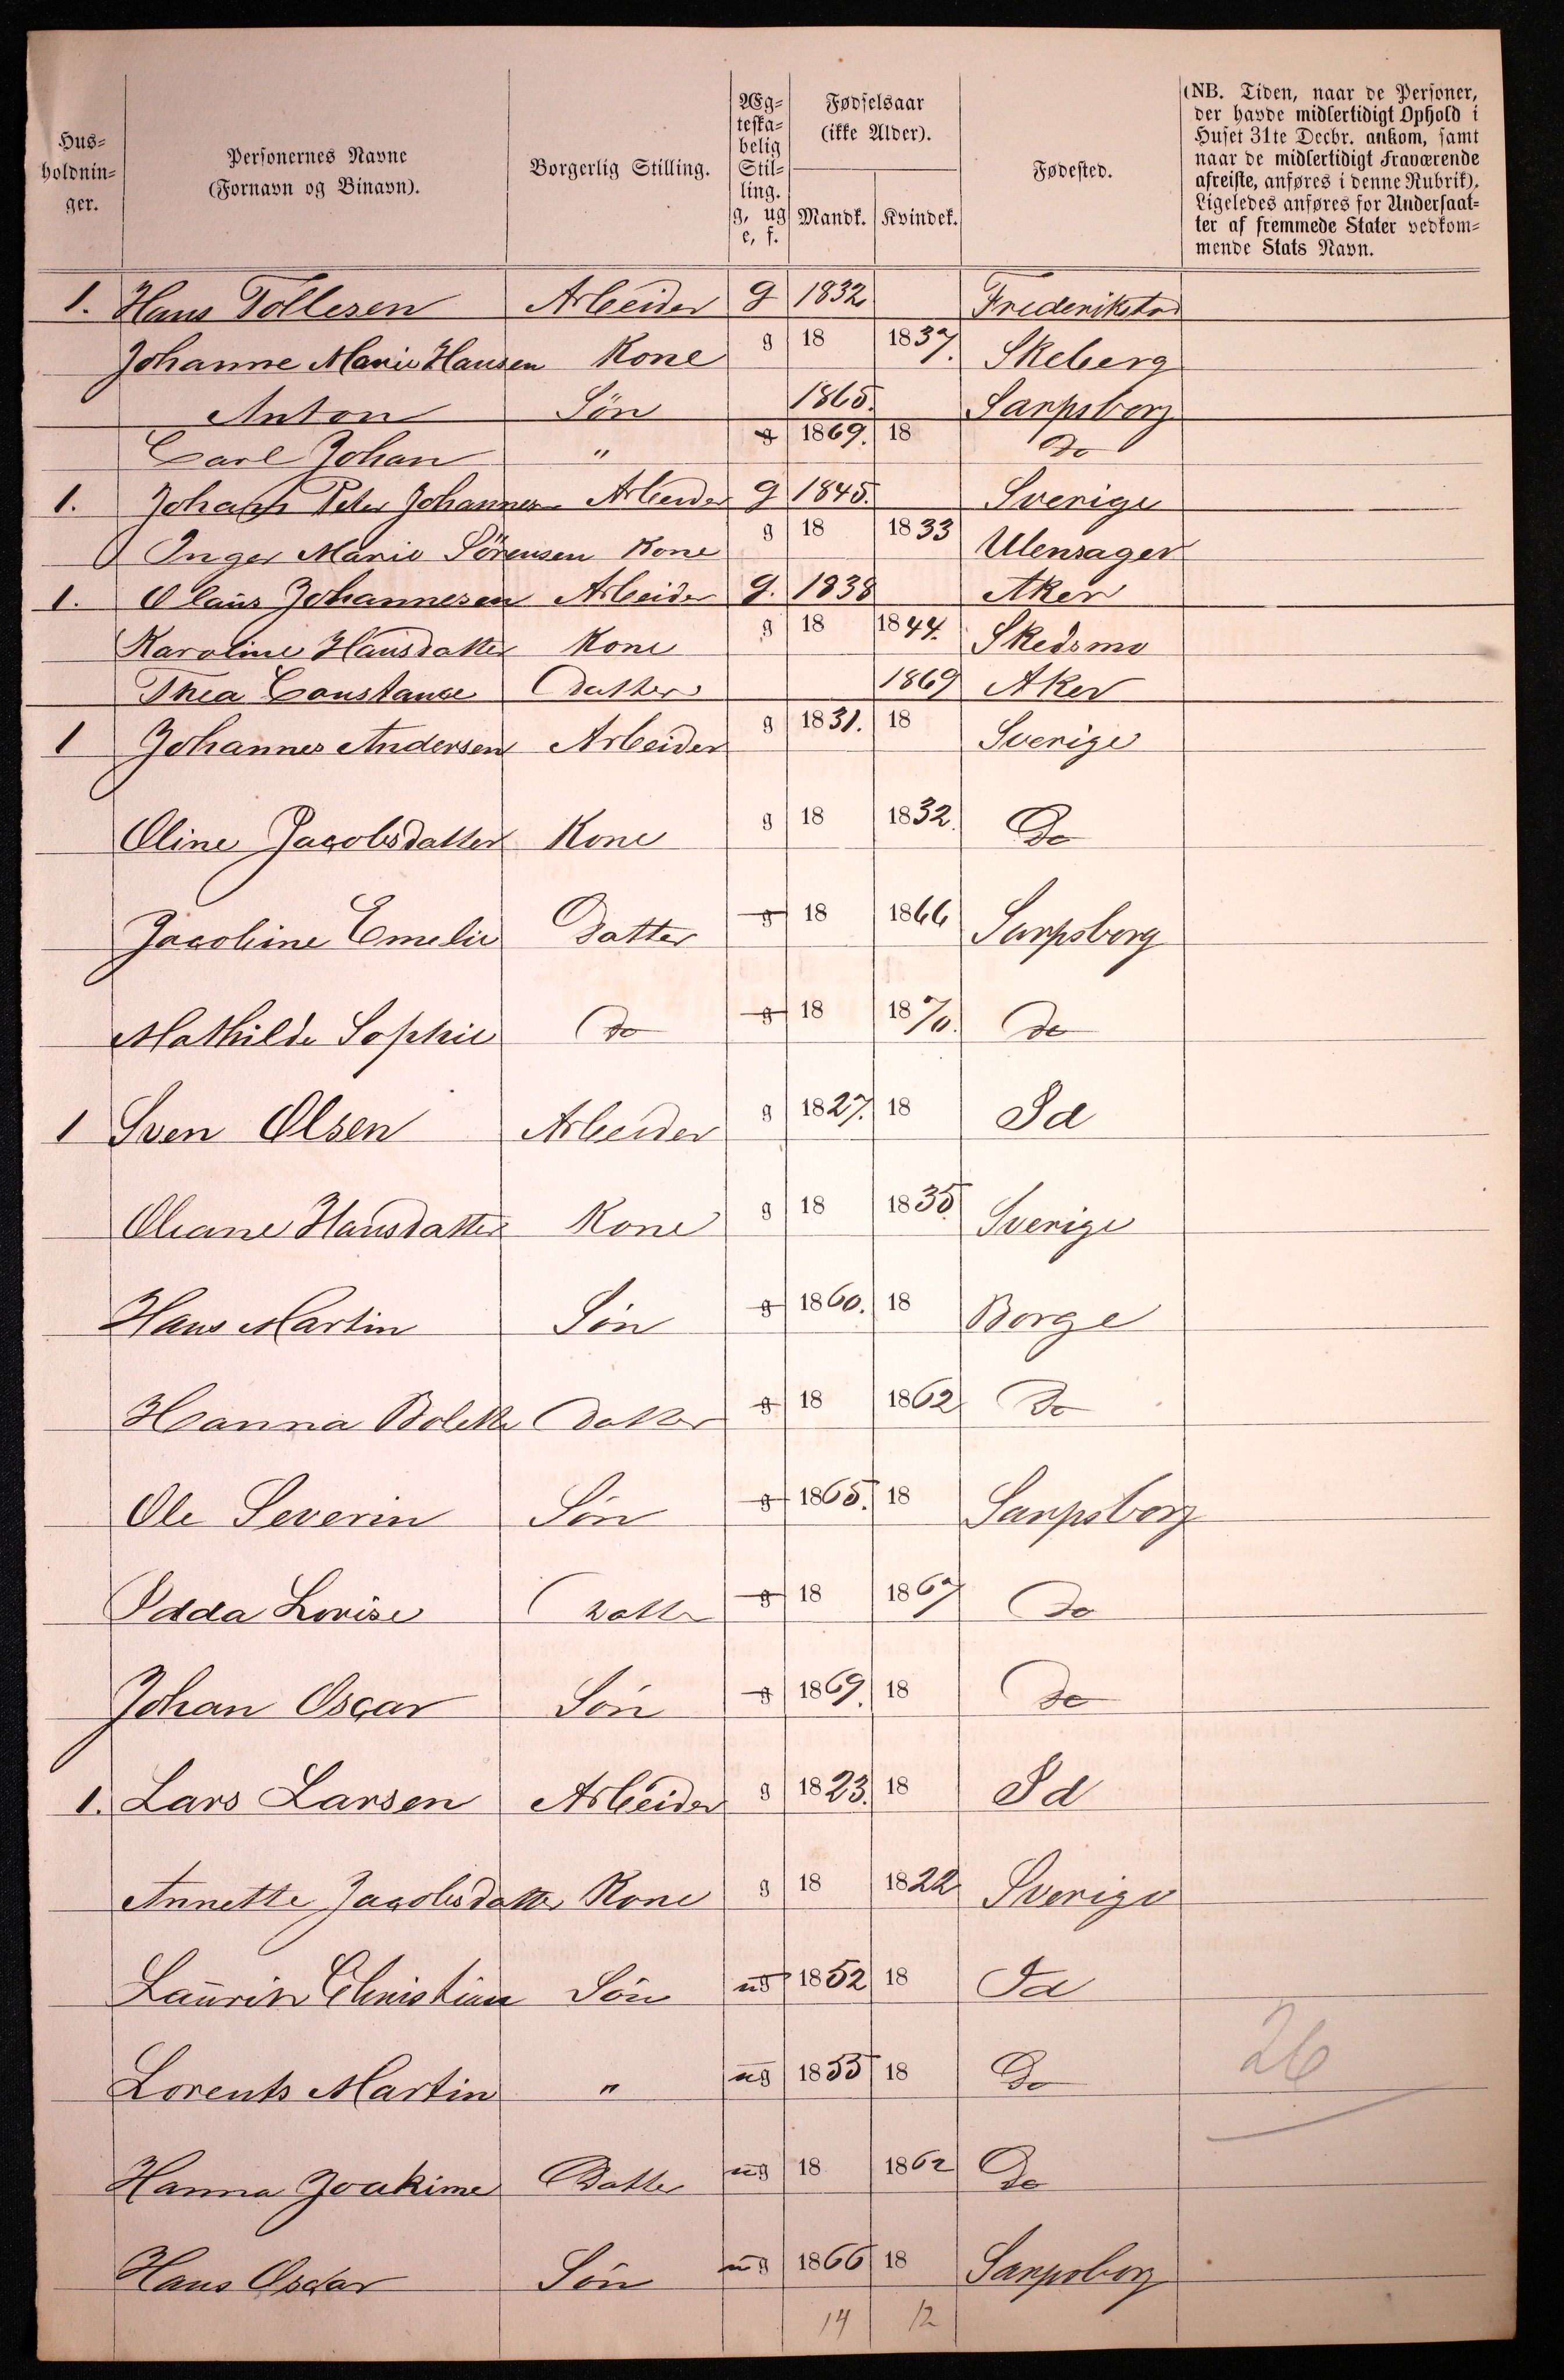 Hus-
holdnin-
ger.
Personernes Navne
(Fornavn og Binavn).
Borgerlig Stilling.
Æg-
teska-
belig
Stil-
ling.
g, ug
e, f.
Fødselsaar
(ikke Alder).
Mandk. Kvindek.
Fødested.
(NB. Tiden, naar de Personer,
der havde midlertidigt Ophold i
Huset 31te Decbr. ankom, samt
naar de midlertidigt Fraværende
afreiste, anføres i denne Rubrik).
Ligeledes anføres for Undersaat-
ter af fremmede Stater vedkom-
mende Stats Navn.
1. Hans Tollesen Arbeider g 1832 Frederikstad
Johanne Marie Hansen Kone g 18 1837. Skeberg
Anton Søn 1865. Sarpsborg
Carl Johan " g 1869. 18 Do
1. Johan Peter Johannesen Arbeider g 1845. Sverige
Inger Marie Sörensen Kone g 18 1833 Ulensager
1. Olaus Johannesen Arbeider g. 1838 Aker
Karoline Hansdatter Kone g 18 1844. Skedsmo
Thea Constance Datter 1869 Aker
1 Johannes Andersen Arbeider g 1831. 18 Sverige
Oline Jacobsdatter Kone g 18 1832. Do
Jacobine Emelie Datter g 18 1866 Sarpsborg
Mathilde Sophie Do g 18 1870. Do
1 Sven Olsen Arbeider g 1827. 18 Id
Oleane Hansdatter Kone g 18 1835 Sverige
Hans Martin Søn g 1860. 18 Borge
Hanna Bolette Datter g 18 1862 Do
Ole Severin Søn g 1865. 18 Sarpsborg
Idda Lovise Datter g 18 1867 Do
Johan Oscar Søn g 1869. 18 Do
1. Lars Larsen Arbeider g 1823. 18 Id
Annette Jacobsdatter Kone g 18 1822 Sverige
Laurits Christian Søn ug 1852 18 Id
Lorents Martin " ug 1855 18 Do
26
Hanna Joakime Datter ug 18 1862 Do
Hans Oscar Søn ug 1866 18 Sarpsborg
14 12